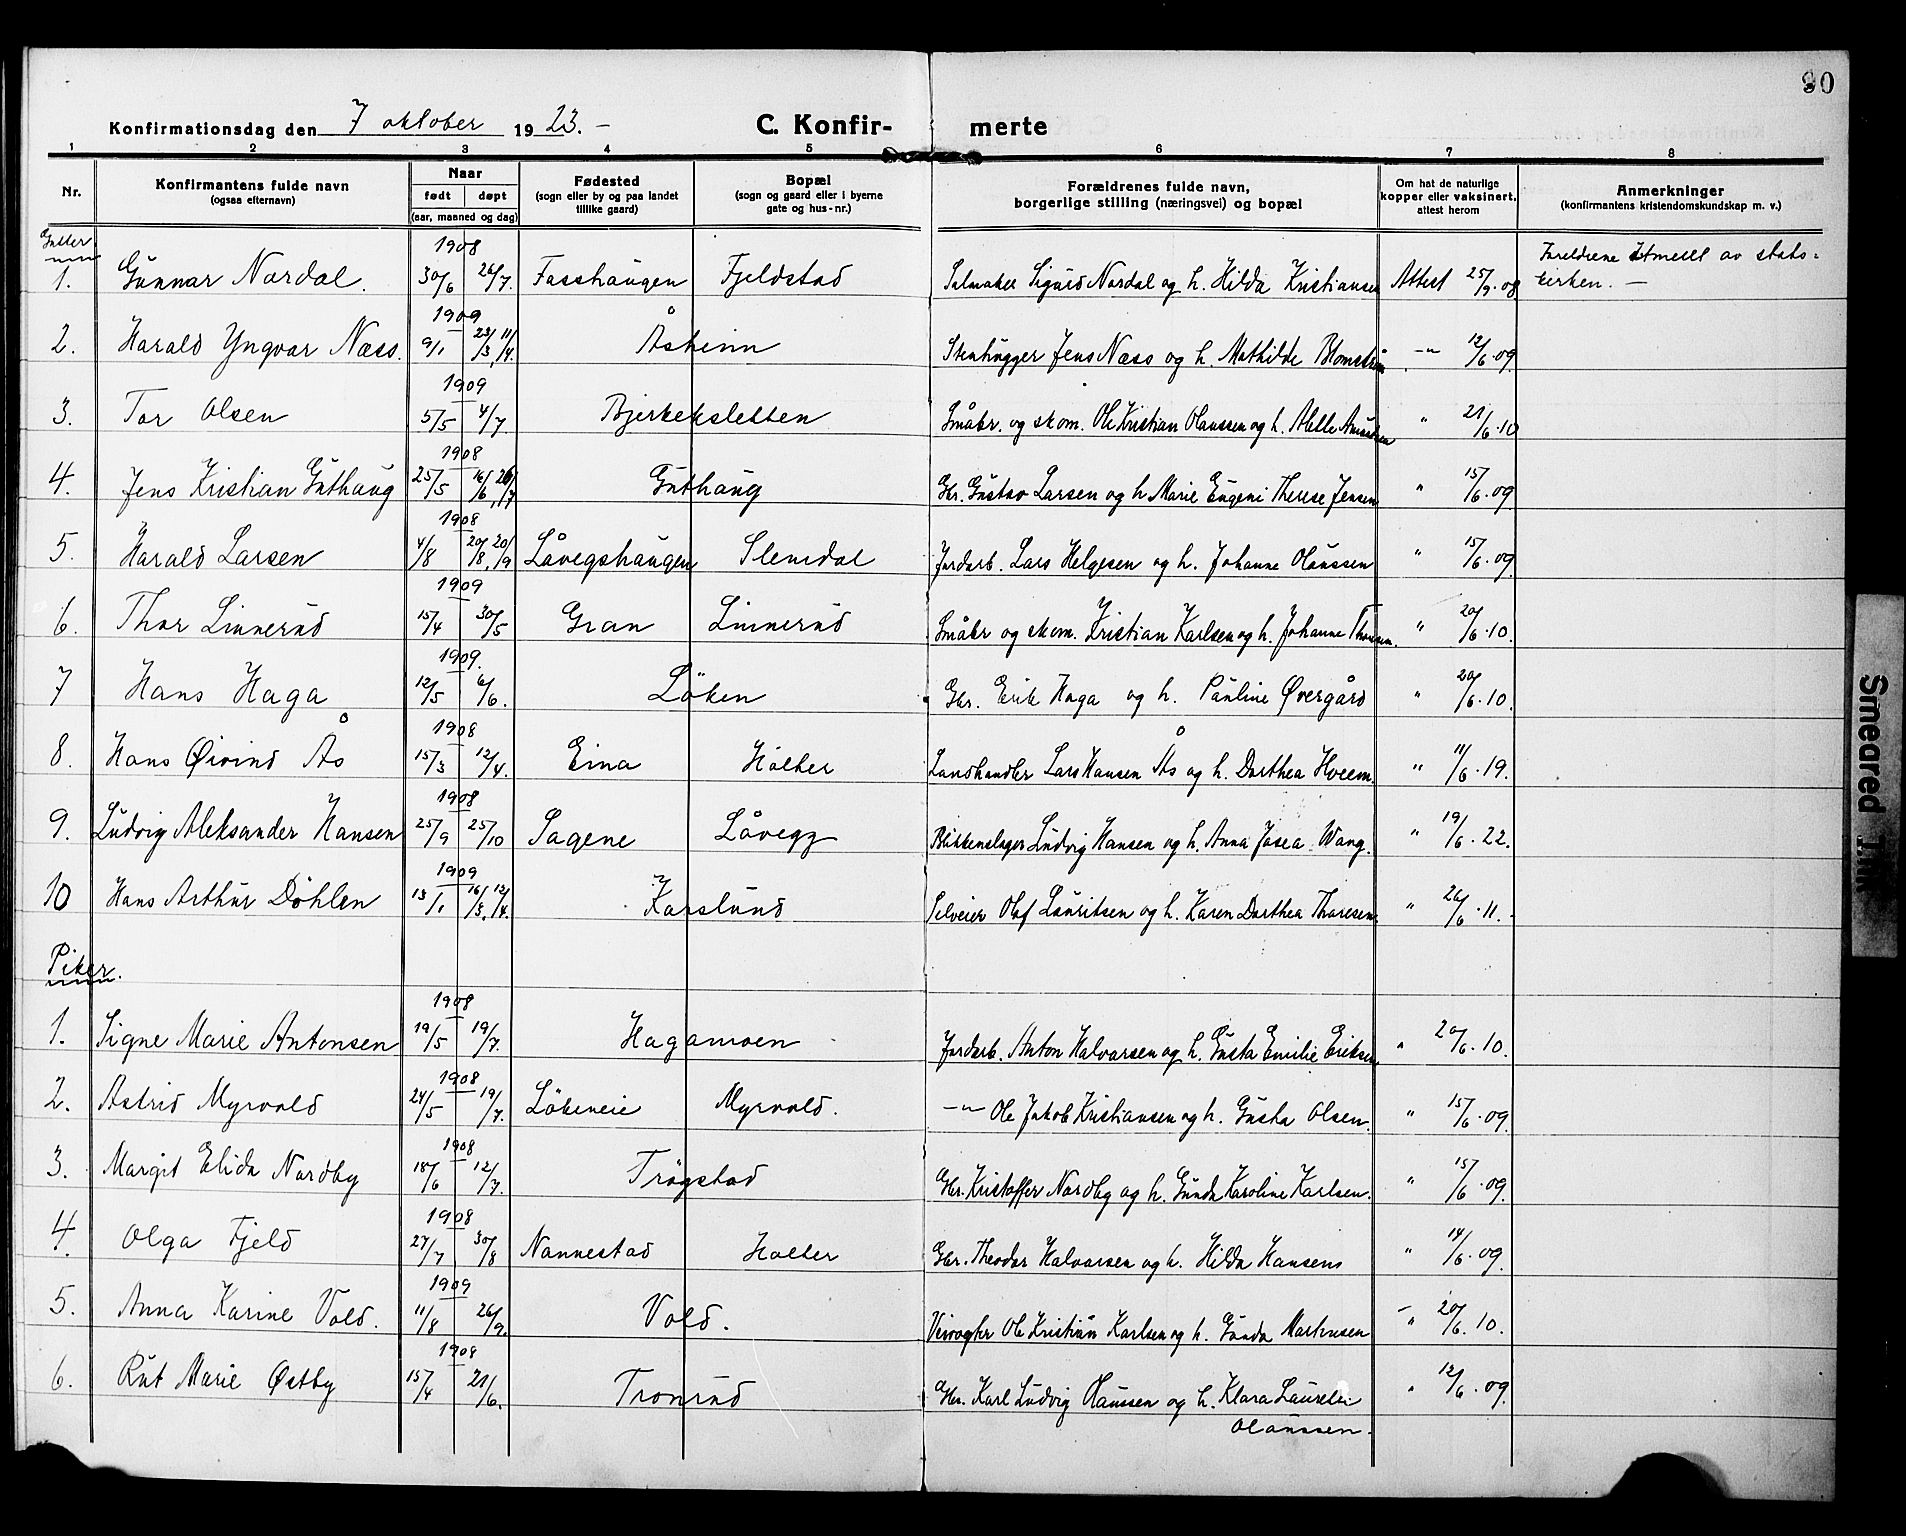 90
Konfirmationsdag den 7 oktober 1923. –
C. Konfir- merte
1 2 3 4 5 6 7 8
Nr. Konfirmantens fulde navn (ogsaa efternavn) Naar født døpt (aar, maaned og dag) Fødested (sogn eller by og paa landet tillike gaard) Bopæl (sogn og gaard eller i byerne gate og hus-nr.) Forældrenes fulde navn, borgerlige stilling (næringsvei) og bopæl Om hat de naturlige kopper eller vaksinert, attest herom Anmerkninger (konfirmantens kristendomskundskap m. v.)
Gutter
1. Gunnar Nordal. 1908 30/6 26/7. Fosshaugen Fjeldstad Salmaker Sigurd Nordal og h. Hilda Kristiansen Attest 25/9.08 Foreldrene utmeldt av stats-
kirken. –
2. Harald Yngvar Næss. 1909 9/1 23/3, 11/4. Åsheim Stenhugger Jens Næss og h. Mathilde Blomstrøm –"– 12/6.09.
3. Tor Olsen 1909 5/5 4/7. Bjerkesletten Småbr. og skom. Ole Kristian Olaussen og h. Alette Amundsen " 21/6.10
4. Jens Kristian Guthaug 1908 25/5 16/6, 26/7 Guthaug Gbr. Gustav Larsen og h Marie Eugeni Therese Jensen " 15/6.09
5. Harald Larsen 1908 4/8 20/8, 20/9 Låvegshaugen Slemdal Jordarb. Lars Helgesen og h. Johanne Olaussen " 15/6.09.
6. Thor Linnerud 1909 15/4 30/5 Gran Linnerud Småbr og skom. Kristian Karlsen og h. Johanne Thoresen. " 20/6.10.
7 Hans Haga 1909. 12/5 6/6. Löken Gbr. Erik Haga og h. Pauline Øvergård " 20/6.10.
8. Hans Øivind Ås 1908 15/3 12/4. Eina Holter Landhandler Lars Hansen Ås og h. Dorthea Hveem. " 11/6.19.
9. Ludvig Aleksander Hansen 1908 25/9 25/10 Sagene Låvegg Blikkenslager Ludvig Hansen og h. Anna Josea Wang. " 19/6.22.
10 Hans Arthur Döhlen 1909 13/1 16/3, 12/4. Karslund Selveier Olaf Lauritsen og h. Karen Dorthea Thoresen. " 26/6.11.
Piker.
1. Signe Marie Antonsen 1908 19/5 19/7. Hagamoen Jordarb. Anton Halvorsen og h. Gusta Emilie Eriksen " 20/6.10.
2. Astrid Myrvold 1908 24/5 19/7. Lökeneie Myrvold. –"– Ole Jakob Kristiansen og h. Gusta Olsen. " 15/6.09.
3. Margit Elida Nordby 1908 18/6 12/7. Trögstad Gbr. Kristoffer Nordby og h. Gunda Karoline Karlsen. " 15/6.09.
4. Olga Fjeld 1908 27/7 30/8 Nannestad Holter Gbr. Theodor Halvorsen og h. Hilda Hansens " 14/6.09.
5. Anna Karine Vold. 1909 11/8 26/9. Vold. Veivogter Ole Kristian Karlsen og h. Gunda Martinsen " 20/6.10.
6. Rut Marie Østby 1908 15/4 21/6. Tronrud Gbr. Karl Ludvig Olaussen og h. Klara Laurentse " 12/6.09.
Olaussen.
Smeared Ink